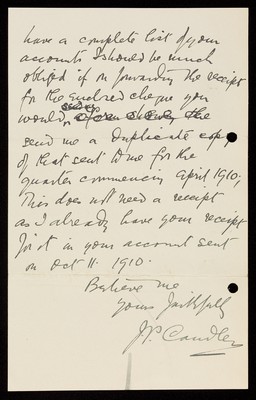 have a complete list of your
accounts I should be much
obliged if in forwarding the receipt
for the enclosed cheque you
would, the
send me a duplicate copy
of that sent to me for the
quarter commencing April 1910;
This does not need a receipt
as I already have your receipt
for it in your account sent
on Oct 11. 1910.
Believe me
yours faithfully
J.P. Candler